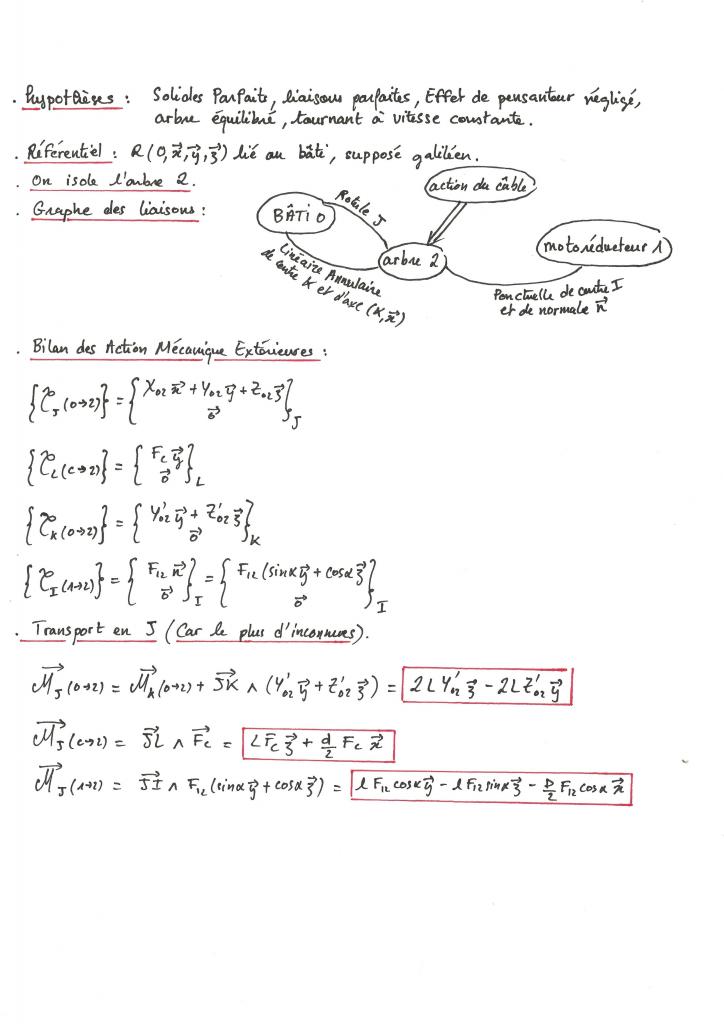 . Hypothèses : Solides Parfaits, liaisons parfaites, Effet de pensanteur négligé,
arbre équilibré, tournant à vitesse constante.
. Référentiel : R(O, x⃗, y⃗, z⃗) lié au bâti, supposé galiléen.
. On isole l'arbre 2.
. Graphe des liaisons :
action du câble
BÂTI 0
Rotule J
arbre 2
motoréducteur 1
Linéaire Annulaire
de centre K et d'axe (K, x⃗)
Ponctuelle de centre I
et de normale n⃗
. Bilan des Action Mécanique Extérieures :
{𝒯J(0→2)} = {X02 x⃗ + Y02 y⃗ + Z02 z⃗ ; 0⃗}J
{𝒯L(c→2)} = {Fc y⃗ ; 0⃗}L
{𝒯K(0→2)} = {Y'02 y⃗ + Z'02 z⃗ ; 0⃗}K
{𝒯I(1→2)} = {F12 n⃗ ; 0⃗}I = {F12 (sinα y⃗ + cosα z⃗) ; 0⃗}I
. Transport en J (Car le plus d'inconnues).
M⃗J(0→2) = M⃗K(0→2) + JK⃗ ∧ (Y'02 y⃗ + Z'02 z⃗) = 2L Y'02 z⃗ - 2L Z'02 y⃗
M⃗J(c→2) = JL⃗ ∧ F⃗c = L Fc z⃗ + d/2 Fc x⃗
M⃗J(1→2) = JI⃗ ∧ F12 (sinα y⃗ + cosα z⃗) = l F12 cosα y⃗ - l F12 sinα z⃗ - D/2 F12 cosα x⃗